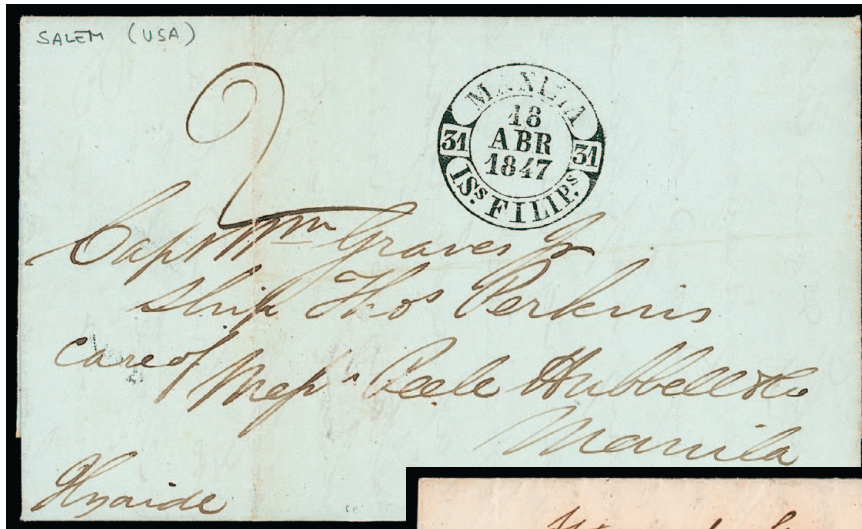 SALEM (USA)
2
MANILA
18
ABR
1847
31 31
ISs FILIP.s
Capt Wm Graves Jr
Ship Thos Perkins
care of
Messrs Peele Hubbell & Co
Manila